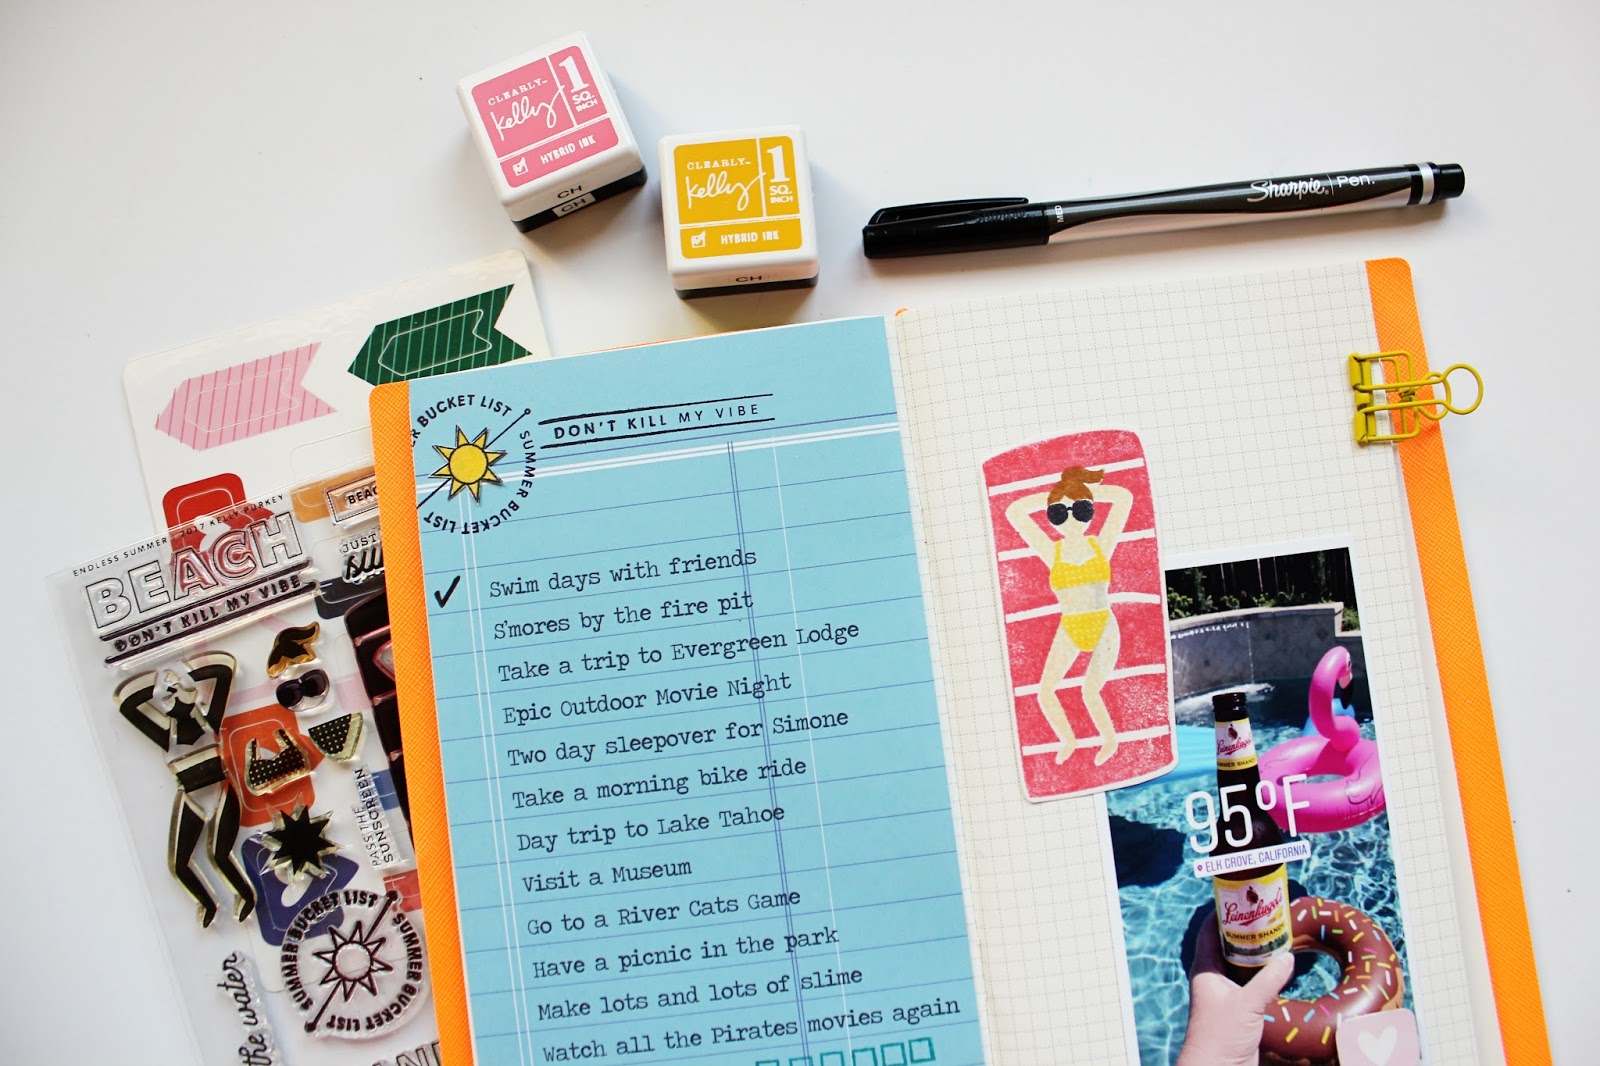 CLEARLY™
Kelly
1
SQ.
INCH
HYBRID INK
CH
CH
CLEARLY™
Kelly
1
SQ.
INCH
HYBRID INK
CH
Sharpie Pen.
MED
BUCKET LIST
SUMMER BUCKET LIST
DON'T KILL MY VIBE
✓ Swim days with friends
S'mores by the fire pit
Take a trip to Evergreen Lodge
Epic Outdoor Movie Night
Two day sleepover for Simone
Take a morning bike ride
Day trip to Lake Tahoe
Visit a Museum
Go to a River Cats Game
Have a picnic in the park
Make lots and lots of slime
Watch all the Pirates movies again
ENDLESS SUMMER
2017 KELLY PURKEY
BEACH
DON'T KILL MY VIBE
BEAC
JUST
PASS THE
SUNSCREEN
SUMMER BUCKET LIST
SUMMER BUCKET LIST
the water
Leinenkugel's
SUMMER SHANDY
95°F
ELK GROVE, CALIFORNIA
Leinenkugel's
SUMMER SHANDY